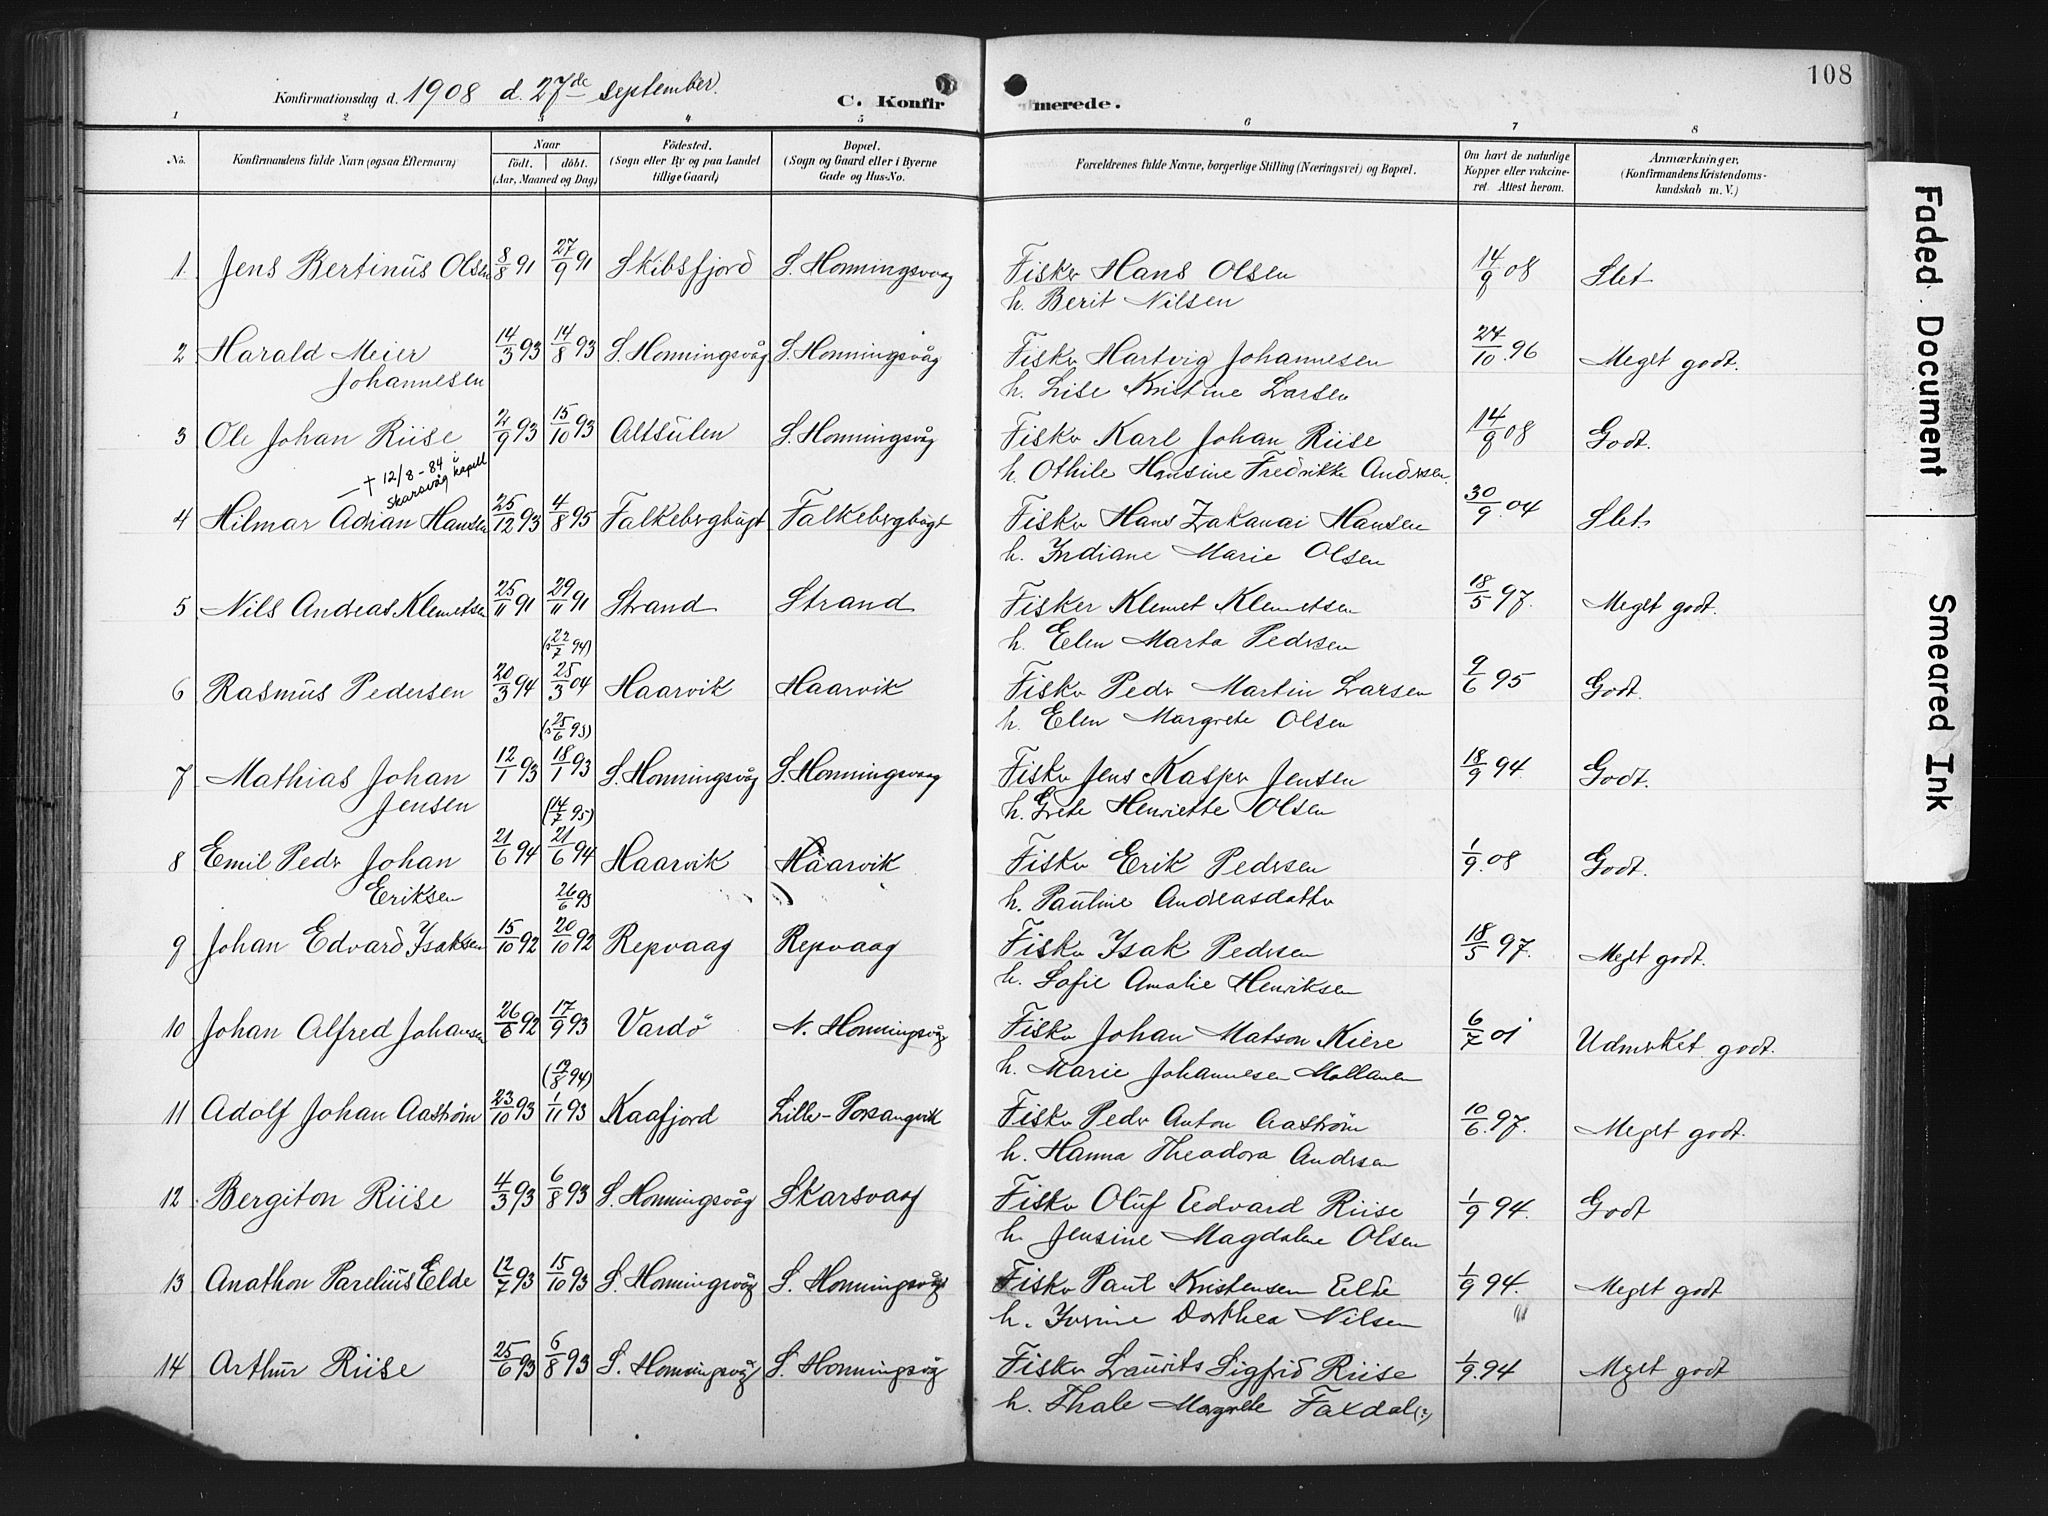 108
Konfirmationsdag d. 1908 d. 27de september.
C. Konfirmerede.
1 2 3 4 5 6 7 8
No. Konfirmandens fulde Navn (ogsaa Efternavn) Naar födt. döbt. (Aar, Maaned og Dag) Födested. (Sogn eller By og paa Landet tillige Gaard) Bopæl. (Sogn og Gaard eller i Byerne Gade og Hus-No. Forældrenes fulde Navne, borgerlige Stilling (Næringsvei) og Bopæl. Om havt de naturlige Kopper eller vakcineret. Attest herom. Anmærkninger. (Konfirmandens Kristendomskundskab m. V.)
1 Jens Bertinus Olsen 8/8 91 27/9 91 Skibsfjord S. Honningsvaag Fisker Hans Olsen 14/9 08 Slet
h. Berit Nilsen
2 Harald Meier 14/3 93 14/8 93 S. Honningsvåg S. Honningsvåg Fisker Hartvig Johannesen 24/10 96 Meget godt.
Johannesen h. Lise Kristine Larsen
3 Ole Johan Riise 2/9 93 15/10 93 Altsulen S. Honningsvåg Fisker Karl Johan Riise 14/9 08 Godt.
h. Othile Hansine Fredrikke Andersen.
— † 12/8-84 i Skarsvåg kapell
4 Hilmar Adrian Hansen 25/12 93 4/8 95 Falkebergbugt Falkebergbugt Fisker Hans Zakanai Hansen 30/9 04 Slet
h. Indiane Marie Olsen
5 Nils Andreas Klemetsen 25/11 91 29/11 91 Strand Strand Fisker Klemet Klemetsen 18/5 97. Meget godt.
h. Elen Marta Pedersen
(22/7 94)
6 Rasmus Pedersen 20/3 94 25/3 04 Haarvik Haarvik Fisker Peder Martin Larsen 9/6 95 Godt.
h. Elen Margrete Olsen
(25/6 93)
7 Mathias Johan 12/1 93 18/1 93 S. Honningsvåg S. Honningsvaag Fisker Jens Kasper Jensen 18/9 94. Godt.
Jensen h. Grete Henriette Olsen
(14/7 95)
8 Emil Peder Johan 21/6 94 21/6 94 Haarvik Haarvik Fisker Erik Pedersen 1/9. 08 Godt.
Eriksen h. Pauline Andreasdatter
26/6 93
9 Johan Edvard Isaksen 15/10 92 20/10 92 Repvaag Repvaag Fisker Isak Pedersen 18/5 97. Meget godt.
h. Sofie Amalie Henriksen
10 Johan Alfred Johansen 26/6 92 17/9 93 Vardö N. Honningsvåg Fisker Johan Matson Kiere 6/7 01 Udmerket godt.
h. Marie Johannesen Mollanen
(12/8 94)
11 Adolf Johan Aaström 23/10 93 1/11 93 Kaafjord Lille-Porsangvik Fisker Peder Anton Aaström 10/6. 97. Meget godt.
h. Hanna Theadora Andersen
12 Bergiton Riise 4/3 93 6/8 93 S. Honningsvåg Skarsvaag Fisker Oluf Eedvard Riise 1/9 94. Godt
h. Jensine Magdalene Olsen
13 Anathon Parelius Elde 12/7 93 15/10 93 S. Honningsvåg S. Honningsvåg Fisker Paul Kristensen Elde 1/9 94. Meget godt
h. Iverine Dorthea Nilsen
14 Arthur Riise 25/6 93 6/8 93 S. Honningsvåg S. Honningsvåg Fisker Laurits Sigfrid Riise 1/9. 94 Meget godt
h. Thale Margrete Faxdal (?)
Faded Document
Smeared Ink